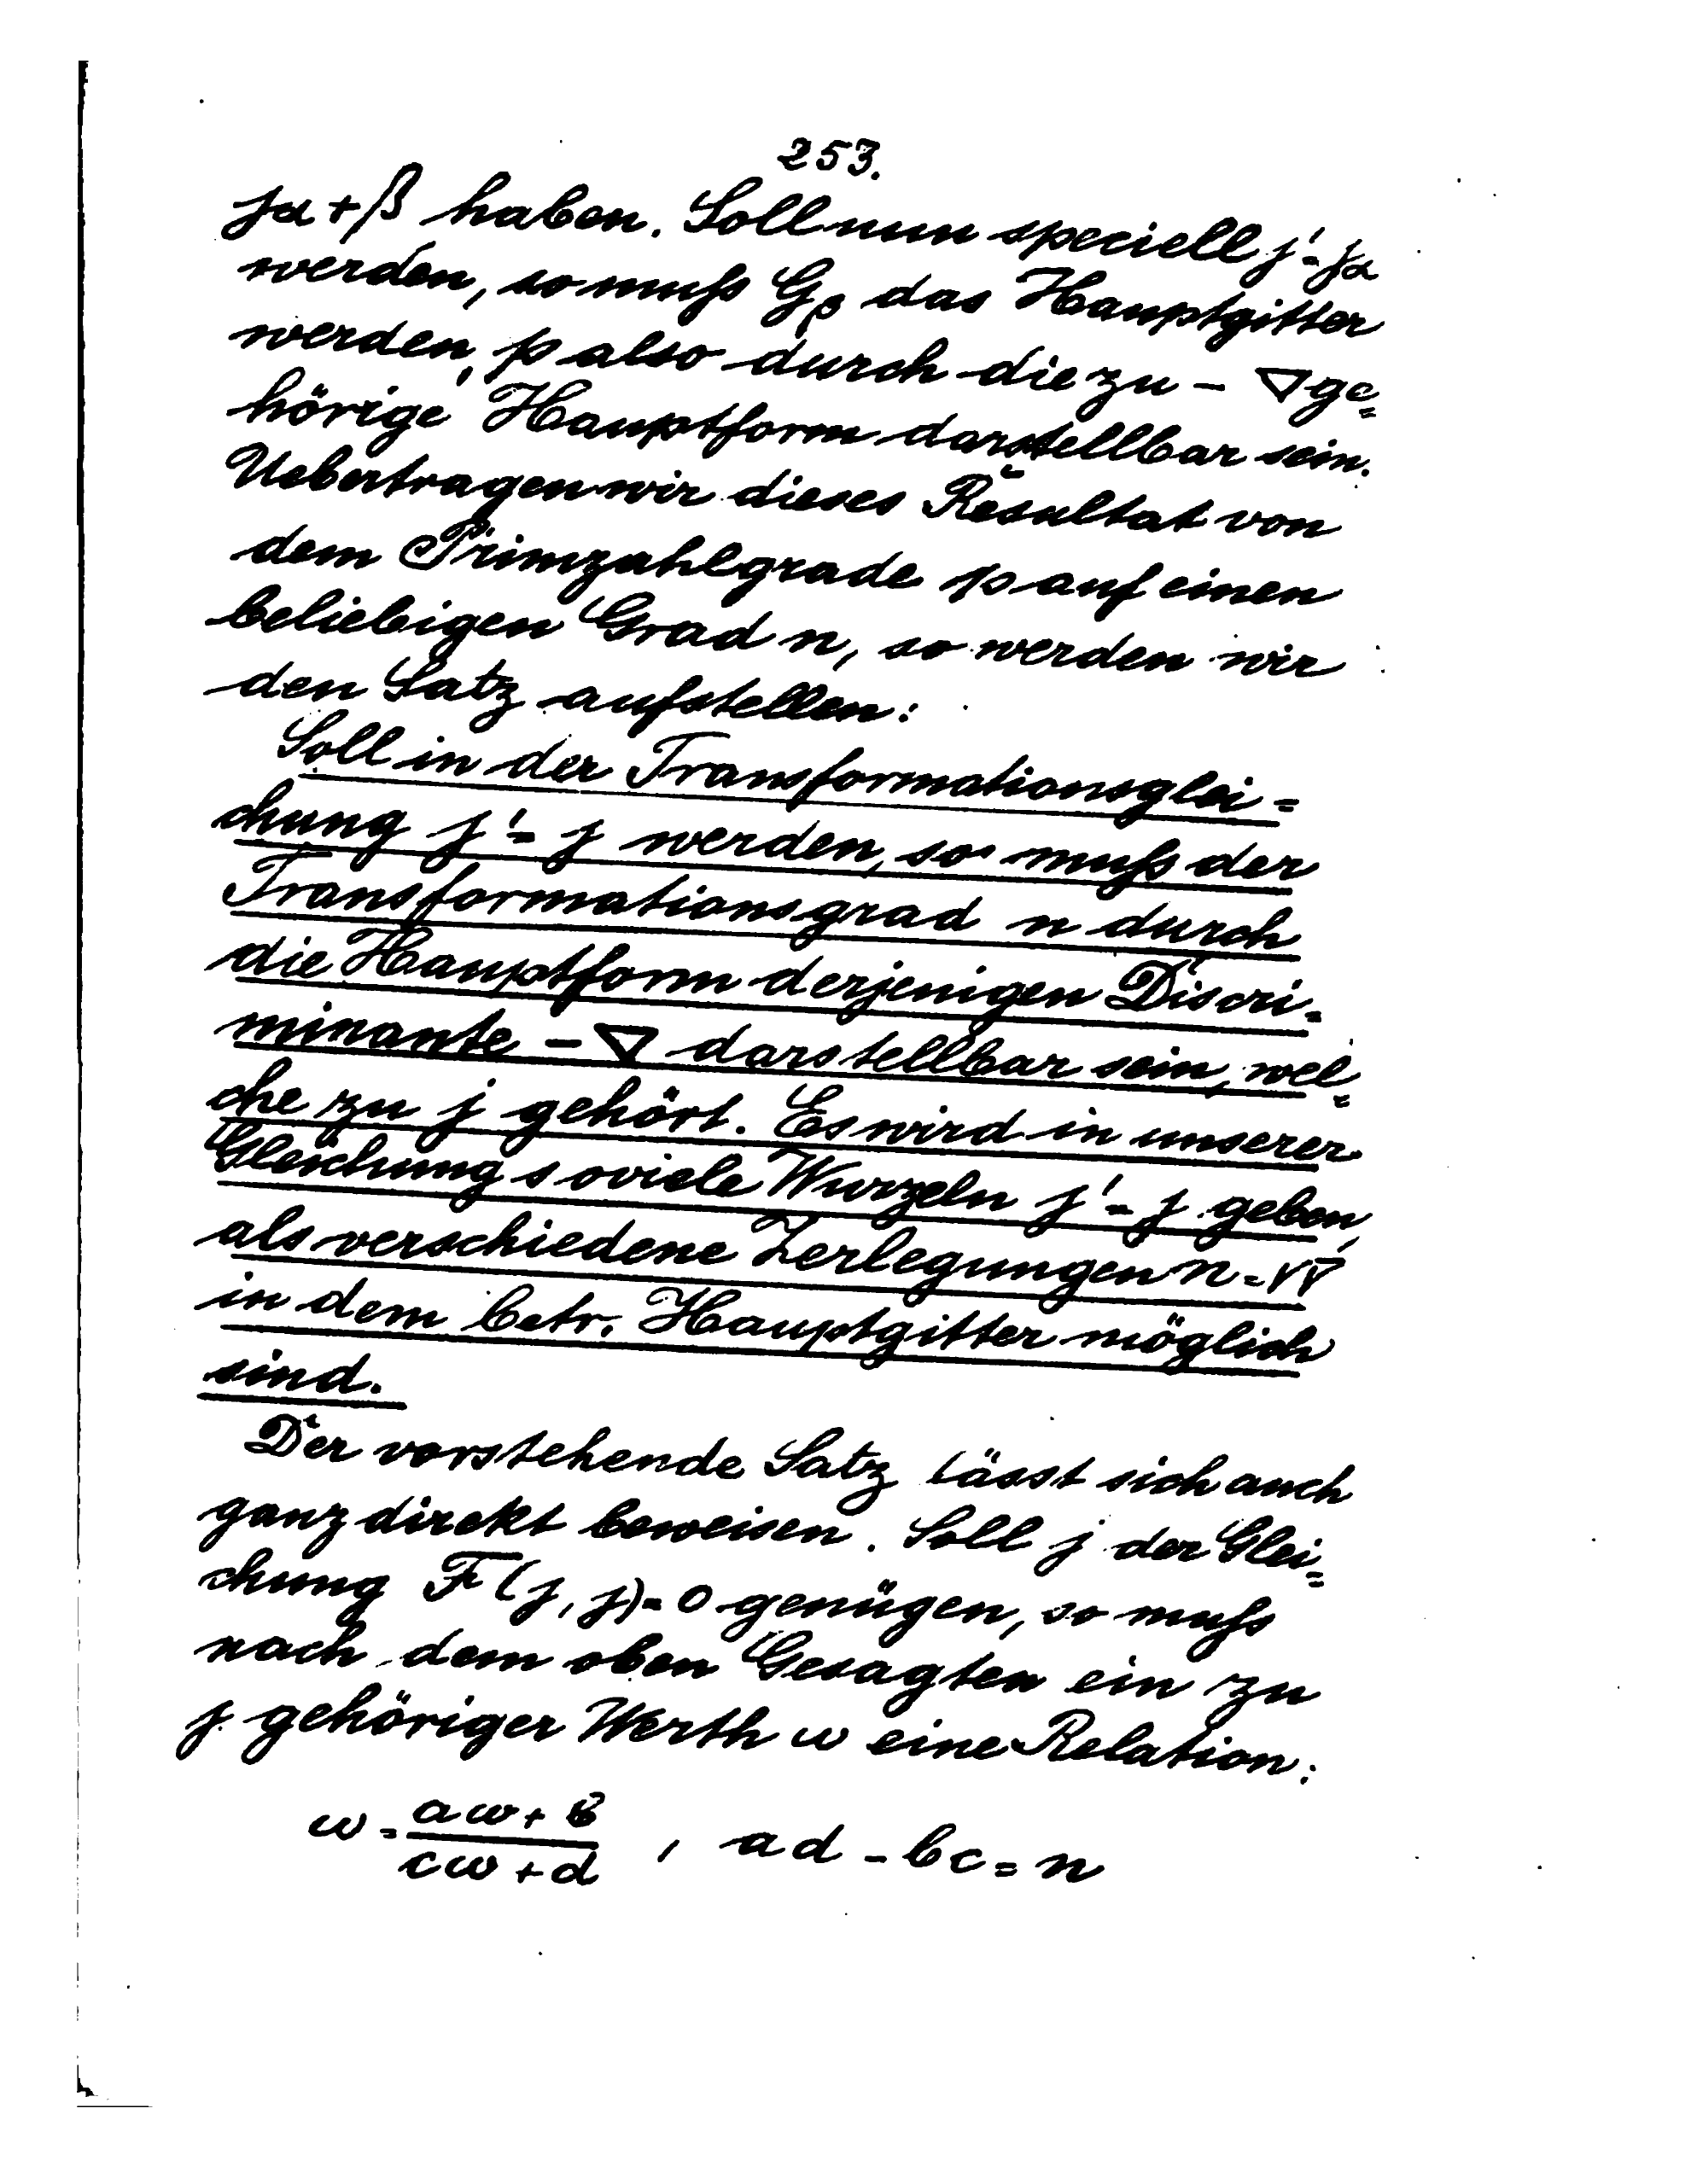 253.
jα+β haben. Soll nun speciell j'=jα
werden, so muſs Gβ das Hauptgitter
werden, p also durch die zu -∇ ge=
hörige Hauptform darstellbar sein.
Uebertragen wir dieses Resultat von
dem Primzahlgrade p auf einen
beliebigen Grad n, so werden wir
den Satz aufstellen:
Soll in der Transformationsglei=
chung j'=j werden, so muſs der
Transformationsgrad n durch
die Hauptform derjenigen Discri=
minante -∇ darstellbar sein, wel=
che zu j gehört. Es wird in unserer
Gleichung soviele Wurzeln j'=j geben,
als verschiedene Zerlegungen n=νν̄
in dem betr. Hauptgitter möglich
sind.
Der vorstehende Satz lässt sich auch
ganz direkt beweisen. Soll j der Glei=
chung F(j,j)=0 genügen, so muſs
nach dem oben Gesagten ein zu
j gehöriger Werth ω eine Relation:
ω = (aω+b)/(cω+d), ad-bc=n